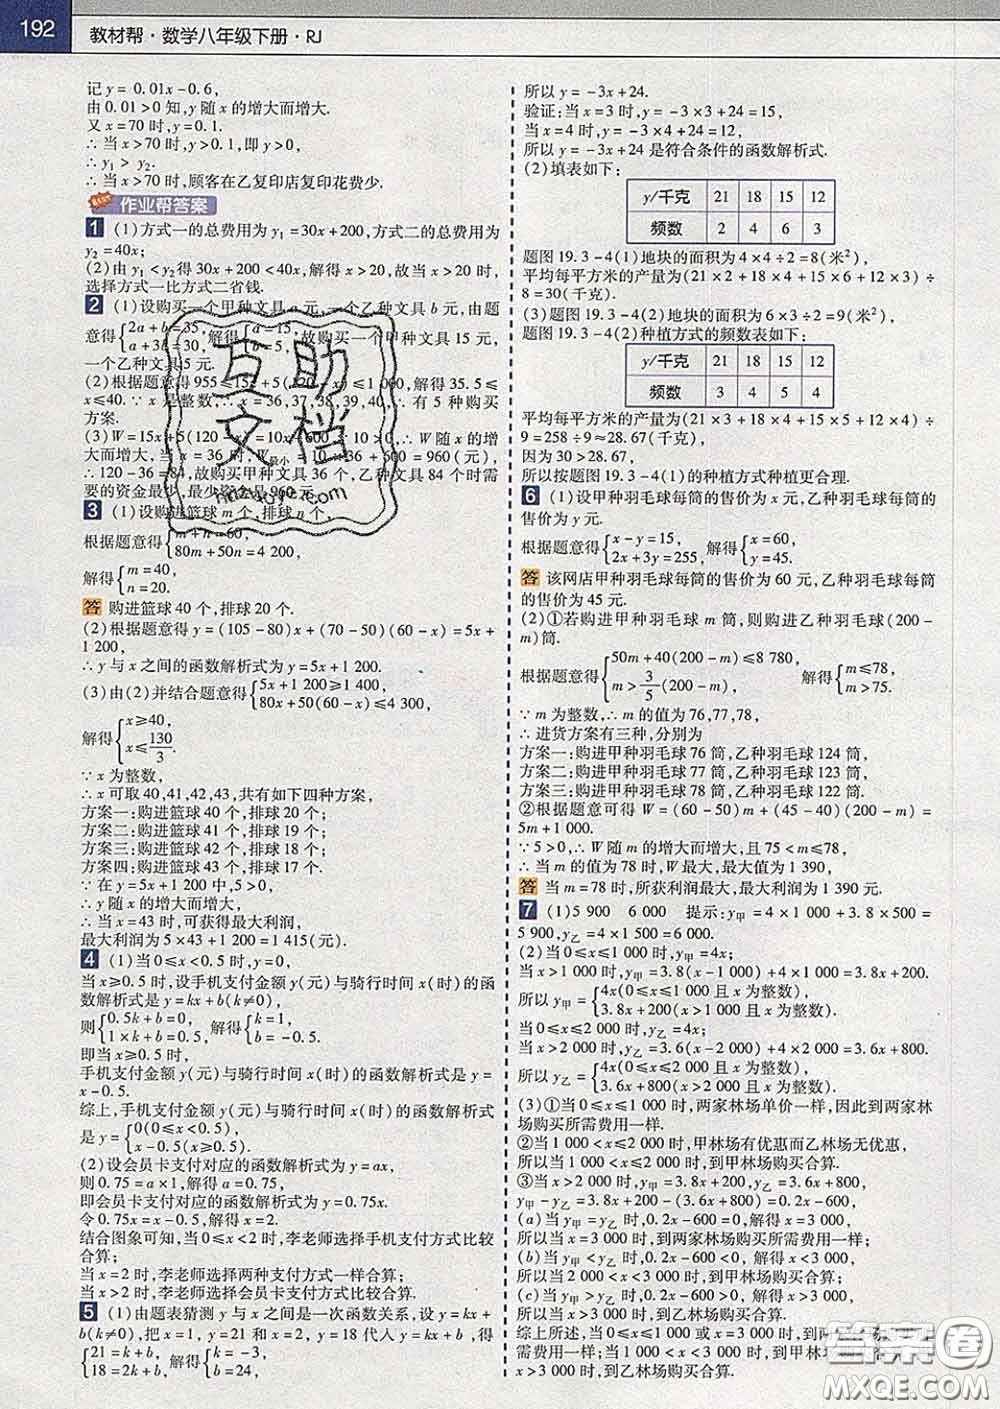 192
教材帮·数学八年级下册·RJ
记y=0.01x-0.6,
由0.01>0知,y随x的增大而增大.
又x=70时,y=0.1.
∴当x>70时,y>0.1,即y>0,
∴y₁>y₂.
∴当x>70时,顾客在乙复印店复印花费少.
作业帮答案
1 (1)方式一的总费用为y₁=30x+200,方式二的总费用为
y₂=40x;
(2)由y₁<y₂得30x+200<40x,解得x>20,故当x>20时,
选择方式一比方式二省钱.
2 (1)设购买一个甲种文具a元,一个乙种文具b元,由题
意得{2a+b=35, a+3b=30, 解得{a=15, b=5, 故购买一个甲种文具15元,
一个乙种文具5元.
(2)根据题意得955≤15x+5(120-x)≤1 000,解得35.5≤
x≤40.∵x是整数,∴x=36,37,38,39,40.∴有5种购买
方案.
(3)W=15x+5(120-x)=10x+600.∵10>0,∴W随x的增
大而增大,当x=36时,W最小=10×36+600=960(元),
∴120-36=84,故购买甲种文具36个,乙种文具84个时需
要的资金最少,最少资金是960元.
3 (1)设购进篮球m个,排球n个,
根据题意得{m+n=60, 80m+50n=4 200,
解得{m=40, n=20.
答 购进篮球40个,排球20个.
(2)根据题意得y=(105-80)x+(70-50)(60-x)=5x+
1 200,
∴y与x之间的函数解析式为y=5x+1 200.
(3)由(2)并结合题意得{5x+1 200≥1 400, 80x+50(60-x)≤4 300,
解得{x≥40, x≤130/3.
∵x为整数,
∴x可取40,41,42,43,共有如下四种方案,
方案一:购进篮球40个,排球20个;
方案二:购进篮球41个,排球19个;
方案三:购进篮球42个,排球18个;
方案四:购进篮球43个,排球17个.
∵在y=5x+1 200中,
∴y随x的增大而增大,
∴当x=43时,可获得最大利润,
最大利润为5×43+1 200=1 415(元).
4 (1)当0≤x<0.5时,y=0,
当x≥0.5时,设手机支付金额y(元)与骑行时间x(时)的函
数解析式是y=kx+b(k≠0),
则{0.5k+b=0, 1×k+b=0.5, 解得{k=1, b=-0.5.
即当x≥0.5时,
手机支付金额y(元)与骑行时间x(时)的函数解析式是y=
x-0.5.
综上,手机支付金额y(元)与骑行时间x(时)的函数解析式
是y={0(0≤x<0.5), x-0.5(x≥0.5).
(2)设会员卡支付对应的函数解析式为y=ax,
则0.75=a×1,解得a=0.75,
即会员卡支付对应的函数解析式为y=0.75x.
令0.75x=x-0.5,解得x=2.
结合图象可知,当0≤x<2时,李老师选择手机支付方式比较
合算;
当x=2时,李老师选择两种支付方式一样合算;
当x>2时,李老师选择会员卡支付方式比较合算.
5 (1)由题表猜测y与x之间是一次函数关系,设y=kx+
b(k≠0),把x=1,y=21和x=2,y=18代入y=kx+b,得
{21=k+b, 18=2k+b, 解得{k=-3, b=24,
所以y=-3x+24.
验证:当x=3时,y=-3×3+24=15,
当x=4时,y=-3×4+24=12,
所以y=-3x+24是符合条件的函数解析式.
(2)填表如下:
y/千克 21 18 15 12
频数 2 4 6 3
题图19.3-4(1)地块的面积为4×4÷2=8(米²),
平均每平方米的产量为(21×2+18×4+15×6+12×3)÷
8=30(千克).
(3)题图19.3-4(2)地块的面积为6×3÷2=9(米²),
题图19.3-4(2)种植方式的频数表如下:
y/千克 21 18 15 12
频数 3 4 5 4
平均每平方米的产量为(21×3+18×4+15×5+12×4)÷
9=258÷9≈28.67(千克),
因为30>28.67,
所以按题图19.3-4(1)的种植方式种植更合理.
6 (1)设甲种羽毛球每筒的售价为x元,乙种羽毛球每筒的
售价为y元.
根据题意得{x-y=15, 2x+3y=255, 解得{x=60, y=45.
答 该网店甲种羽毛球每筒的售价为60元,乙种羽毛球每筒
的售价为45元.
(2)①若购进甲种羽毛球m筒,则购进乙种羽毛球(200-
m)筒.
根据题意得{50m+40(200-m)≤8 780, m>3/5(200-m), 解得{m≤78, m>75.
∵m为整数,∴m的值为76,77,78,
∴进货方案有三种,分别为
方案一:购进甲种羽毛球76筒,乙种羽毛球124筒,
方案二:购进甲种羽毛球77筒,乙种羽毛球123筒,
方案三:购进甲种羽毛球78筒,乙种羽毛球122筒.
②根据题意可得W=(60-50)m+(45-40)(200-m)=
5m+1 000.
∵5>0,∴W随m的增大而增大,且75<m≤78,
∴当m的值为78时,W最大,最大值为1 390,
答 当m=78时,所获利润最大,最大利润为1 390元.
7 (1)5 900 6 000 提示:y甲=4×1 000+3.8×500=
5 900,y乙=4×1 500=6 000.
(2)当0≤x≤1 000时,y甲=4x;
当x>1 000时,y甲=3.8(x-1 000)+4×1 000=3.8x+200.
所以y甲={4x(0≤x≤1 000且x为整数), 3.8x+200(x>1 000且x为整数).
当0≤x≤2 000时,y乙=4x;
当x>2 000时,y乙=3.6(x-2 000)+4×2 000=3.6x+800.
所以y乙={4x(0≤x≤2 000且x为整数), 3.6x+800(x>2 000且x为整数).
(3)①当0≤x≤1 000时,两家林场单价一样,因此到两家林
场购买所需费用一样.
②当1 000<x≤2 000时,甲林场有优惠而乙林场无优惠,
所以当1 000<x≤2 000时,到甲林场购买合算.
③当x>2 000时,y甲=3.8x+200,y乙=3.6x+800,
y甲-y乙=3.8x+200-(3.6x+800)=0.2x-600,
(a)当y甲=y乙时,0.2x-600=0,解得x=3 000,
所以当x=3 000时,到两家林场购买所需费用一样;
(b)当y甲<y乙时,0.2x-600<0,解得x<3 000,
所以当2 000<x<3 000时,到甲林场购买合算;
(c)当y甲>y乙时,0.2x-600>0,解得x>3 000,
所以当x>3 000时,到乙林场购买合算.
综上所述,当0≤x≤1 000或x=3 000时,到两
需费用一样;当1 000<x<3 000时,到甲林场购买合算;当
x>3 000时,到乙林场购买合算.
互助
文档
答案圈
MXQE.COM